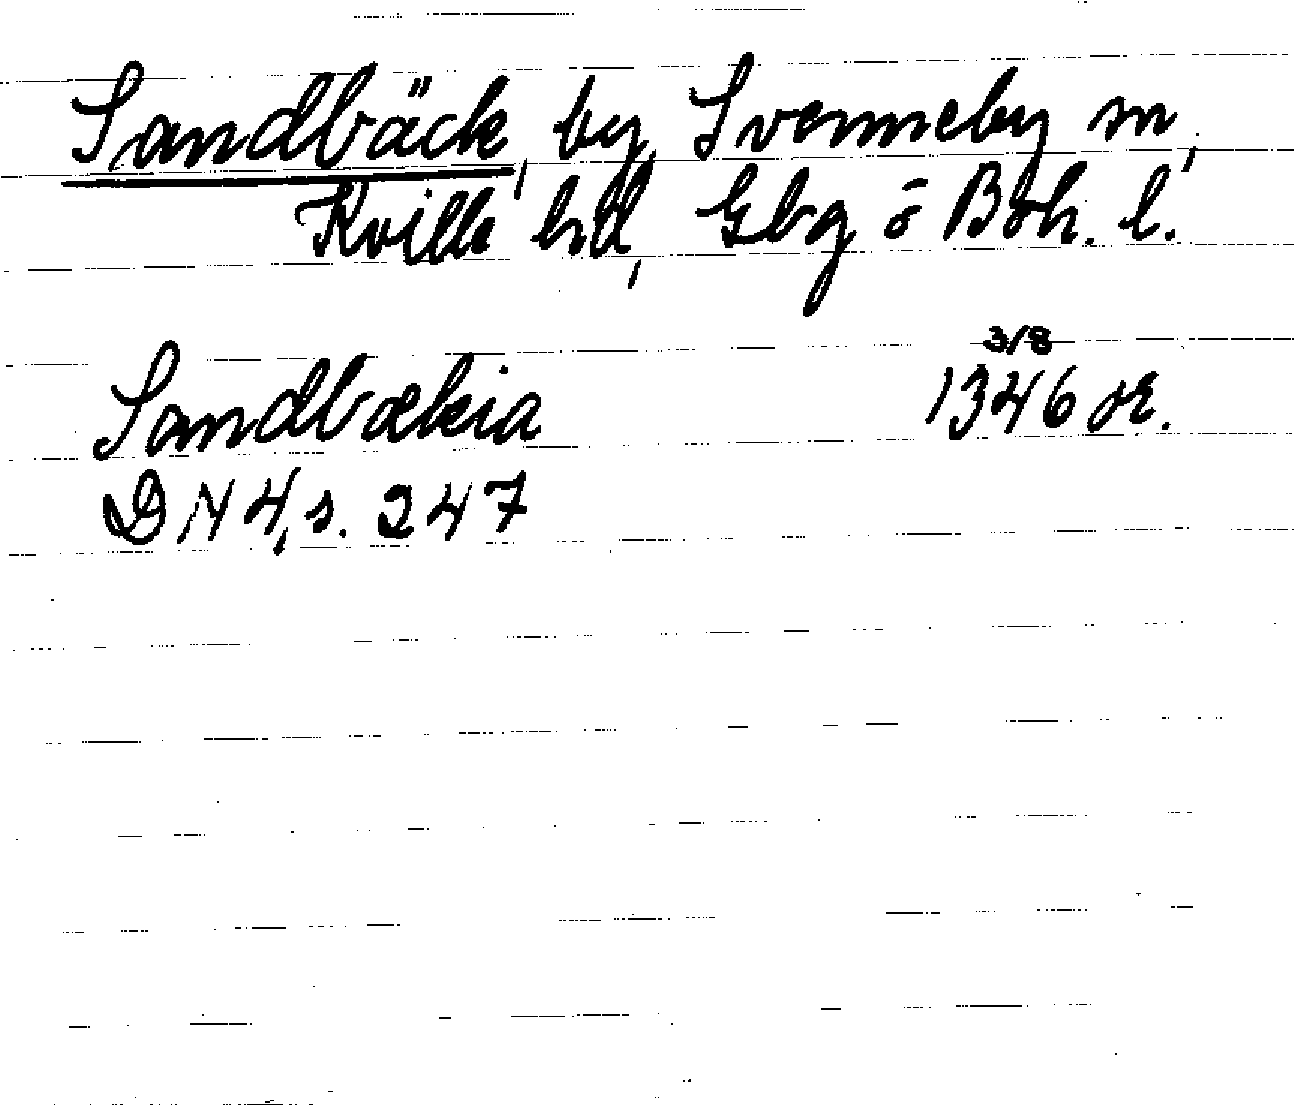 Sandbäck, by, Svenneby sn,
Kville hd, Gbg o Boh. l.
Sandbækia 3/8 1346 or.
DN 4, s. 247